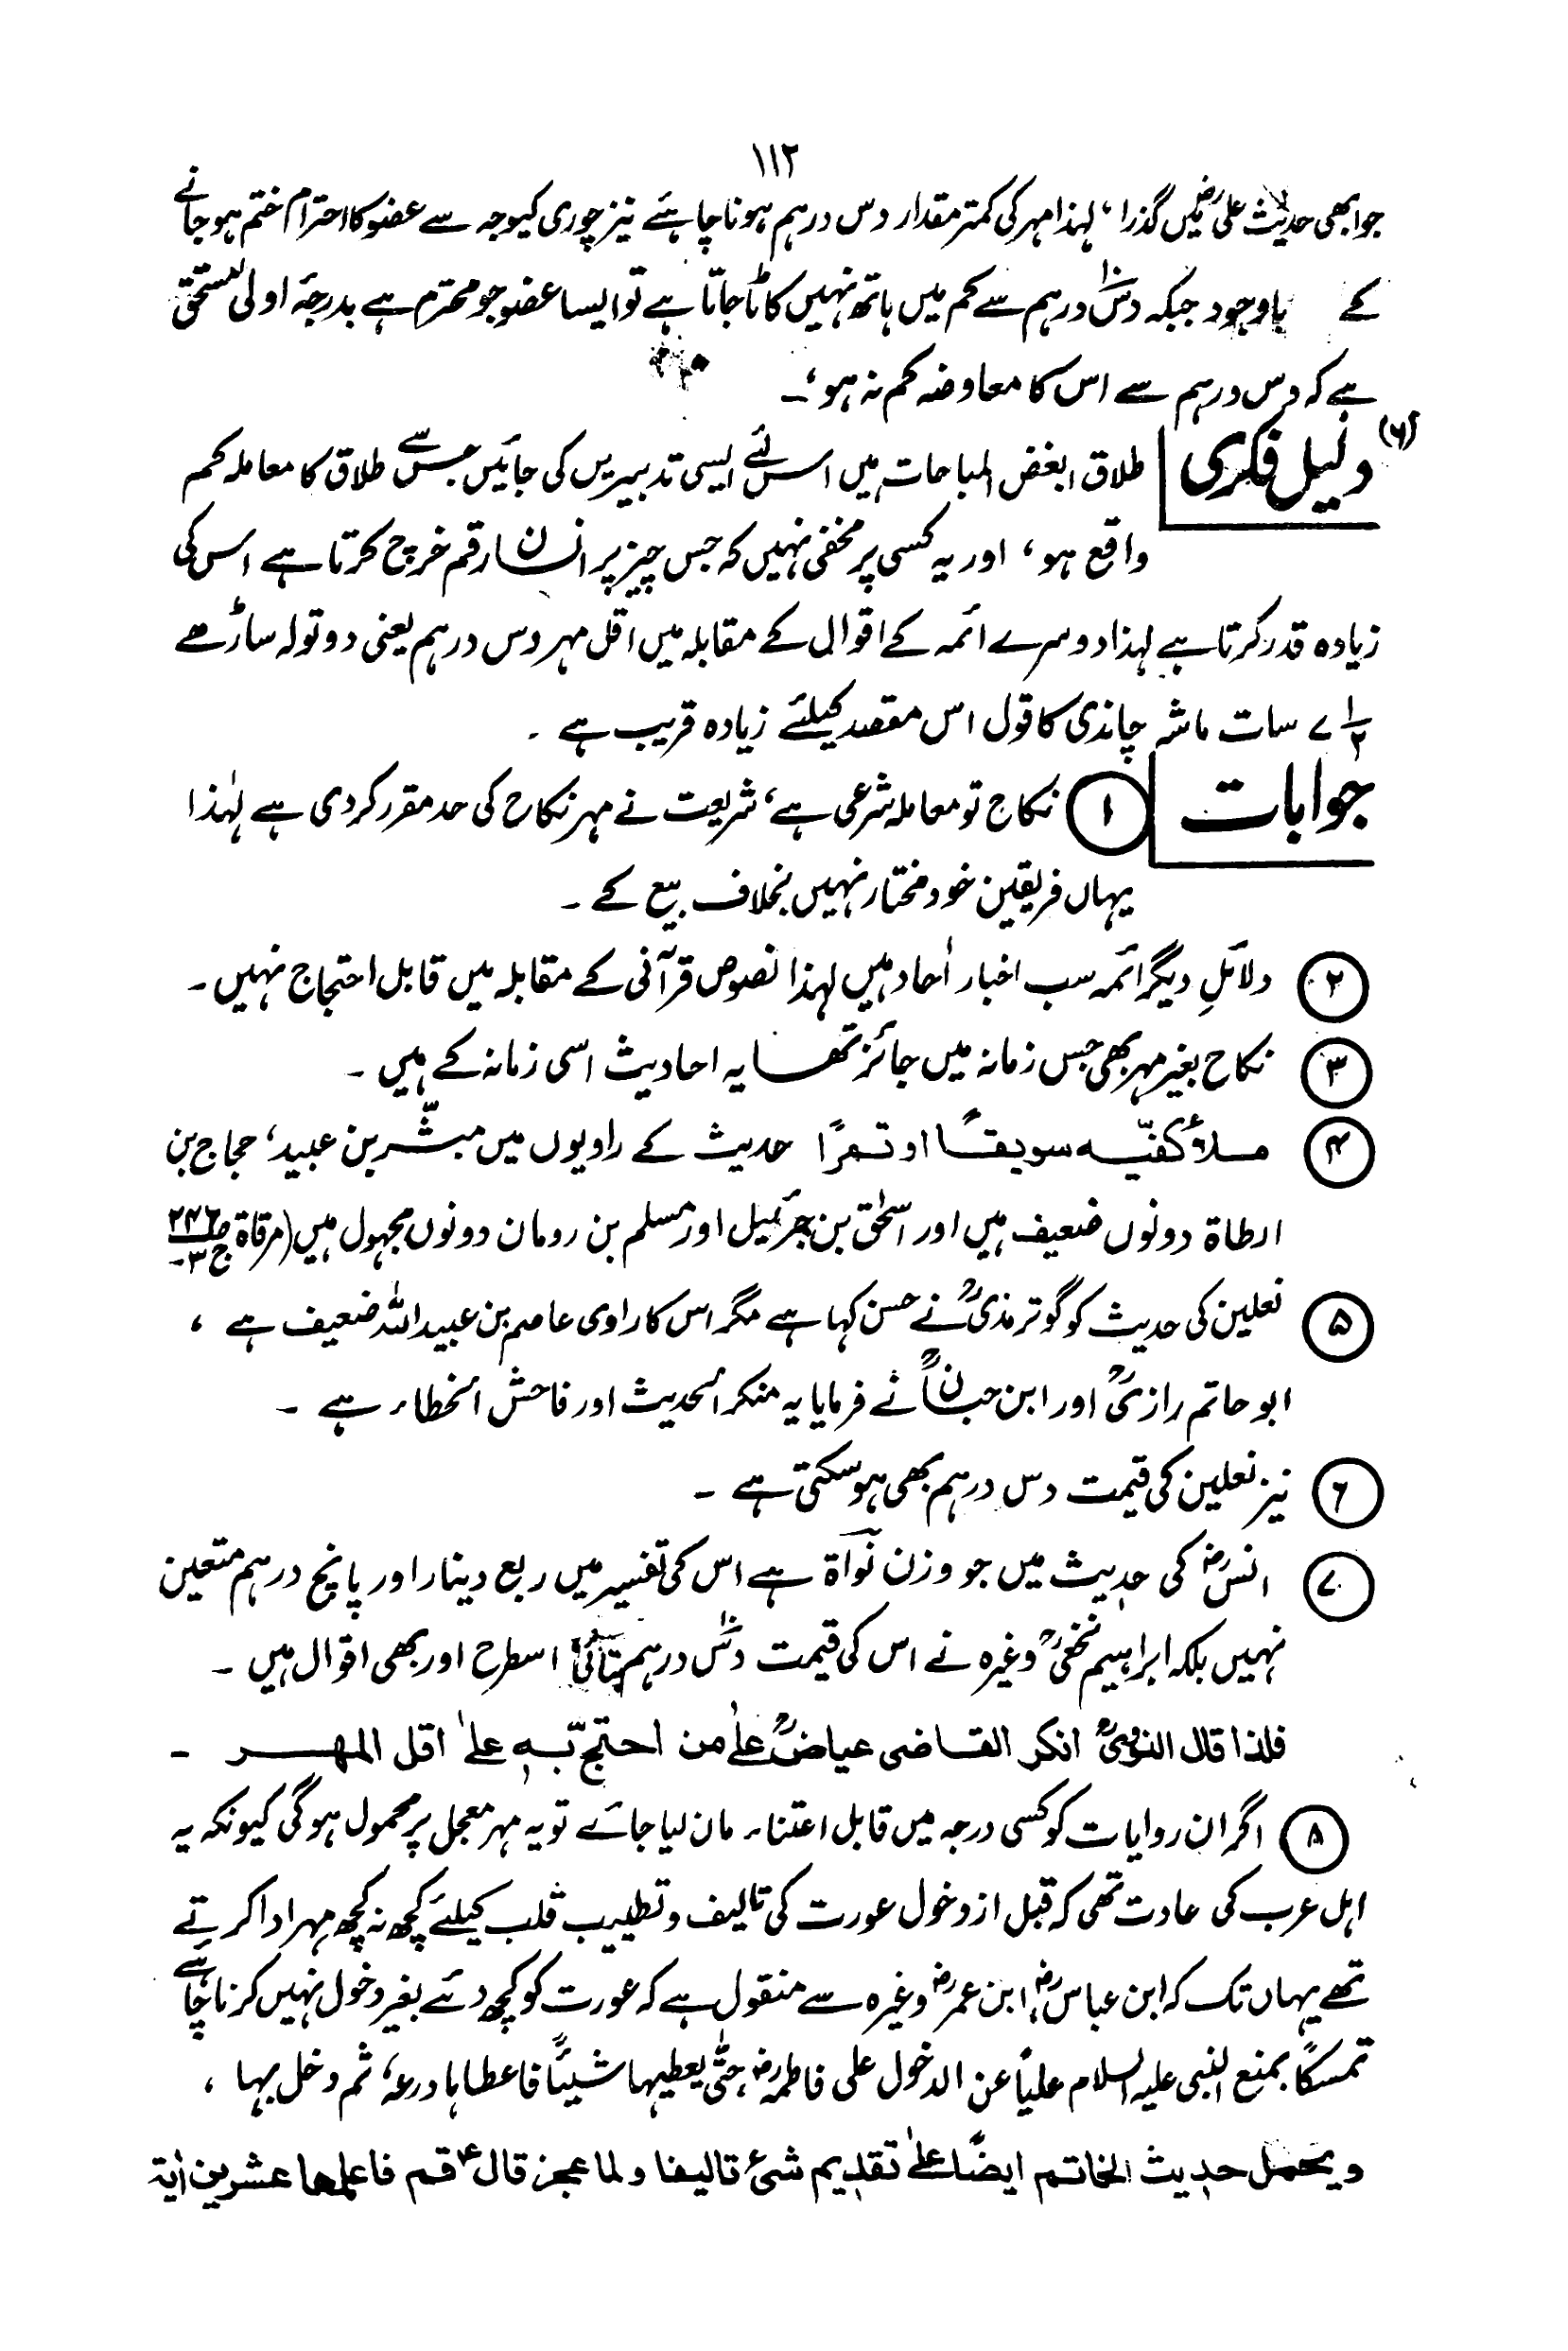 ۱۱۲
جو ابھی حدیث علیؓ میں گذرا، لہذا مہر کی کمتر مقدار دس درہم ہونا چاہئے نیز چوری کیوجہ سے عضو کا احترام ختم ہو جانے
کے باوجود جبکہ دسؔ۱۰ درہم سے کم میں ہاتھ نہیں کاٹا جاتا ہے تو ایسا عضو جو محترم ہے بدرجۂ اولیٰ مستحق
ہے کہ دس درہم سے اس کا معاوضہ کم نہ ہو،۔
(۶) دلیل فکری طلاق ابغض المباحات ہیں اسلئے ایسی تدبیریں کی جائیں جس سے طلاق کا معاملہ کم
واقع ہو، اور یہ کسی پر مخفی نہیں کہ جس چیز پر انسان رقم خرچ کرتا ہے اس کی
زیادہ قدر کرتا ہے لہذا دوسرے ائمہ کے اقوال کے مقابلہ میں اقل مہر دس درہم یعنی دو تولہ ساڑھے
۷ ۱/۲ سات ماشہ چاندی کا قول اس مقصد کیلئے زیادہ قریب ہے ۔
جوابات ۱ نکاح تو معاملہ شرعی ہے، شریعت نے مہر نکاح کی حد مقرر کر دی ہے لہٰذا
یہاں فریقین خود مختار نہیں بخلاف بیع کے ۔
۲ دلائلِ دیگر ائمہ سب اخبار اٰحاد ہیں لہذا نصوص قرآنی کے مقابلہ میں قابل احتجاج نہیں ۔
۳ نکاح بغیر مہر بھی جس زمانہ میں جائز تھا یہ احادیث اسی زمانہ کے ہیں ۔
۴ ملأ کفّیہ سویقًا او تمرًا حدیث کے راویوں میں مبشّر بن عبید، حجاج بن
ارطاۃ دونوں ضعیف ہیں اور اسحٰق بن جبرئیل اور مسلم بن رومان دونوں مجہول ہیں (مرقاۃ ص۲۴۶ ج۳۔
۵ نعلین کی حدیث کو گو ترمذیؒ نے حسن کہا ہے مگر اس کا راوی عاصم بن عبید اللہ ضعیف ہے ،
ابو حاتم رازیؒ اور ابن حبانؒ نے فرمایا یہ منکر الحدیث اور فاحش الخطاء ہے ۔
۶ نیز نعلین کی قیمت دس درہم بھی ہو سکتی ہے ۔
۷ انسؓ کی حدیث میں جو وزن نَوَاۃ ہے اس کی تفسیر میں ربع دینار اور پانچ درہم متعین
نہیں بلکہ ابراہیم نخعیؒ وغیرہ نے اس کی قیمت دسؔ۱۰ درہم بتائی اسطرح اور بھی اقوال ہیں ۔
فلذا قال النوویؒ انکر القاضی عیاضؒ علیٰ من احتج بہ علیٰ اقل المهر ۔
۸ اگر ان روایات کو کسی درجہ میں قابل اعتناء مان لیا جائے تو یہ مہر معجل پر محمول ہوگی کیونکہ یہ
اہل عرب کی عادت تھی کہ قبل از دخول عورت کی تالیف و تطییب قلب کیلئے کچھ نہ کچھ مہر ادا کرتے
تھے یہاں تک کہ ابن عباسؓ، ابن عمرؓ وغیرہ سے منقول ہے کہ عورت کو کچھ دئے بغیر دخول نہیں کرنا چاہئے
تمسکًا بمنع النبی علیہ السلام علیاً عن الدخول علی فاطمہؓ حتّٰی یعطیہا شیئًا فاعطاہا درعہ، ثم دخل بہا ،
ویحمل حدیث الخاتم ایضًا علیٰ تقدیم شیٔ تالیفا ولما عجز قال ع قم فاعلمها عشرین اٰیة